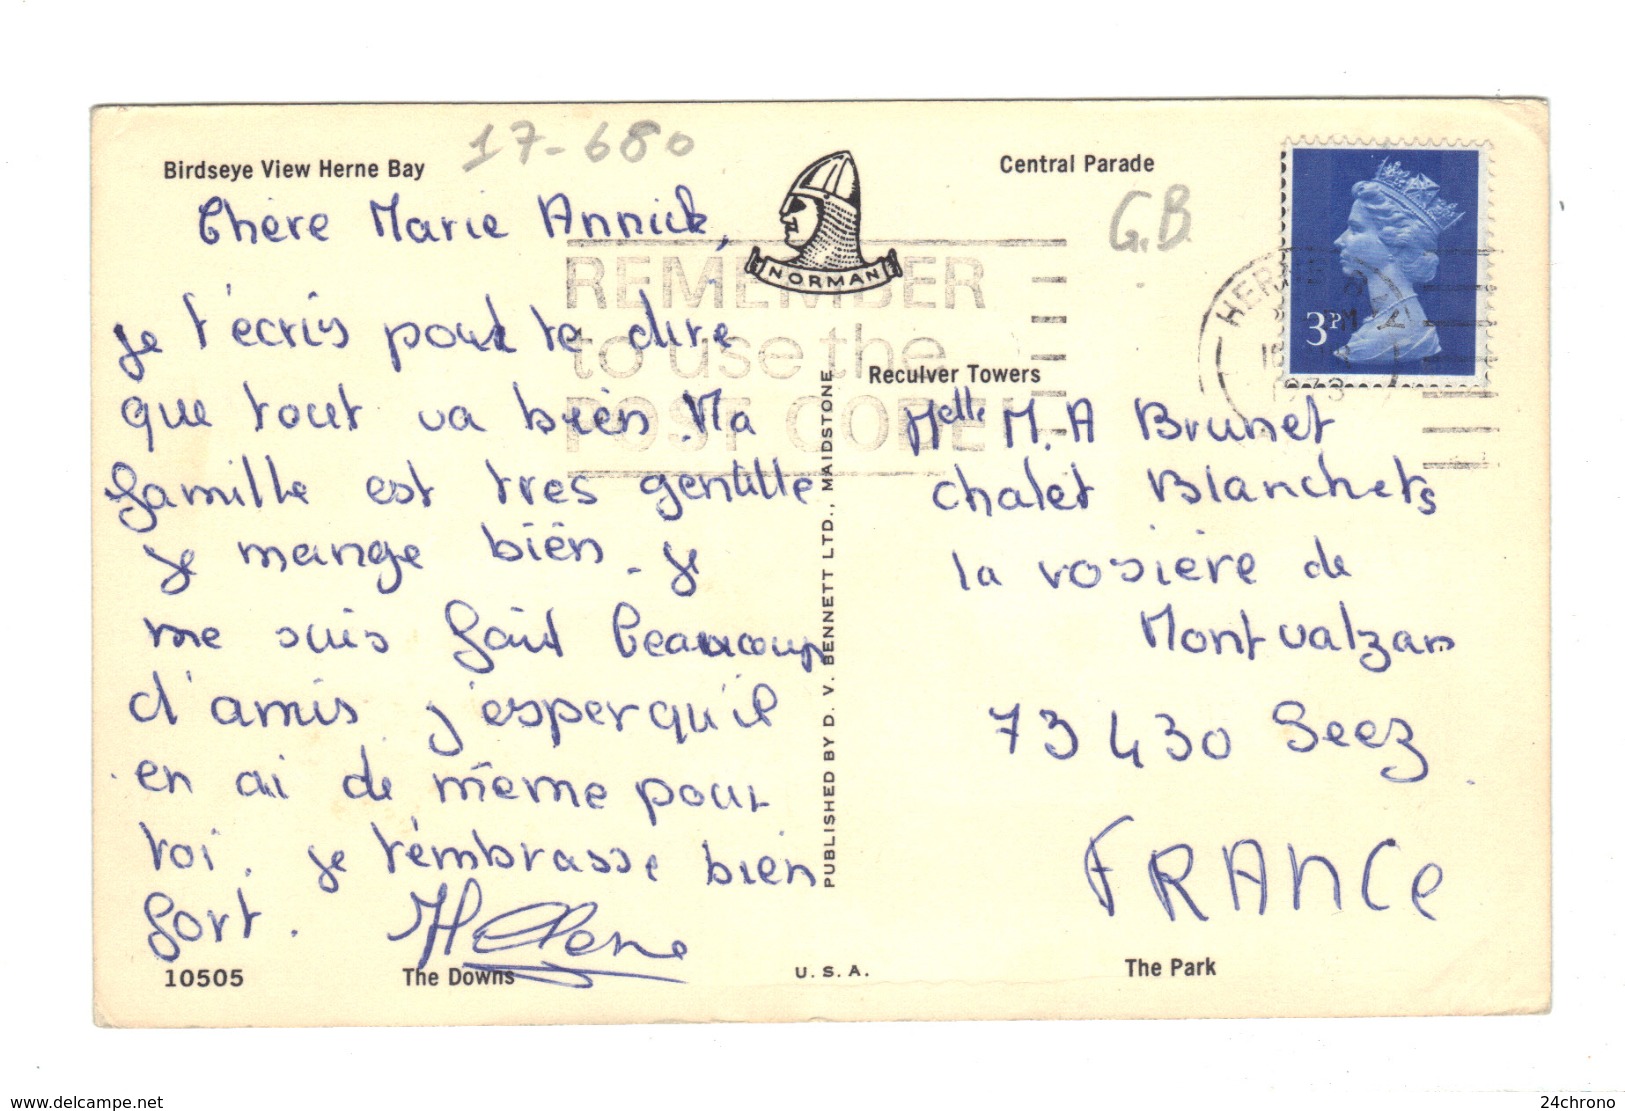 17-680
Birdseye View Herne Bay
Central Parade
G.B
Chère Marie Annick,
NORMAN
REMEMBER
to use the
POST CODE
HERNE BAY
PM
1973
3P
je t'écris pour te dire
que tout va bien. Ma
famille est tres gentille
je mange bien. je
me suis fait beaucoup
d'amis j'esper qu'il
en ai de même pour
toi. je t'embrasse bien
fort. Hélène
PUBLISHED BY D. V. BENNETT LTD., MAIDSTONE
Reculver Towers
Melle M. A Brunet
chalet Blanchets
la rosière de
Montvalzan
73430 Seez
FRANCE
10505
The Downs
U. S. A.
The Park
delcampe.net
24chrono